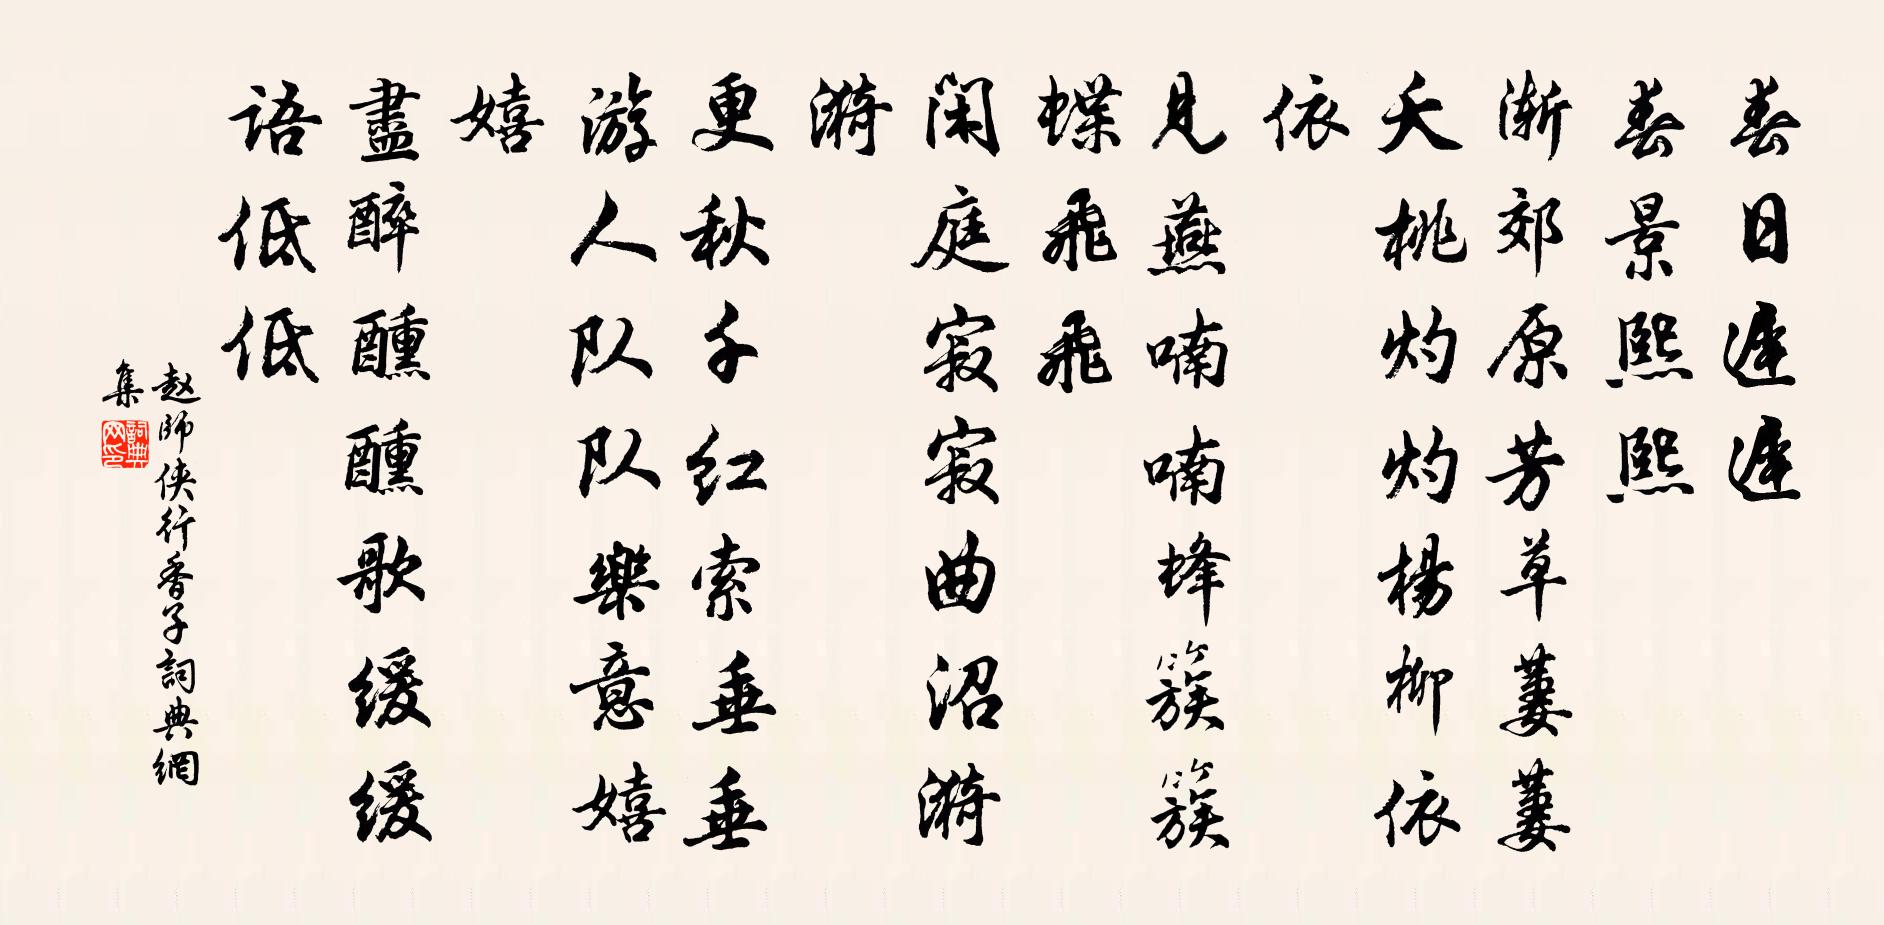 春日遲遲
春景熙熙
渐郊原芳草萋萋
夭桃灼灼楊柳依
依
見燕喃喃蜂簇簇
蝶飛飛
閑庭寂寂曲沼漪
漪
更秋千红索垂垂
游人队队樂意嬉
嬉
盡醉醺醺歌缓缓
语低低
赵師侠行香子詞典網
集
詞典
网印